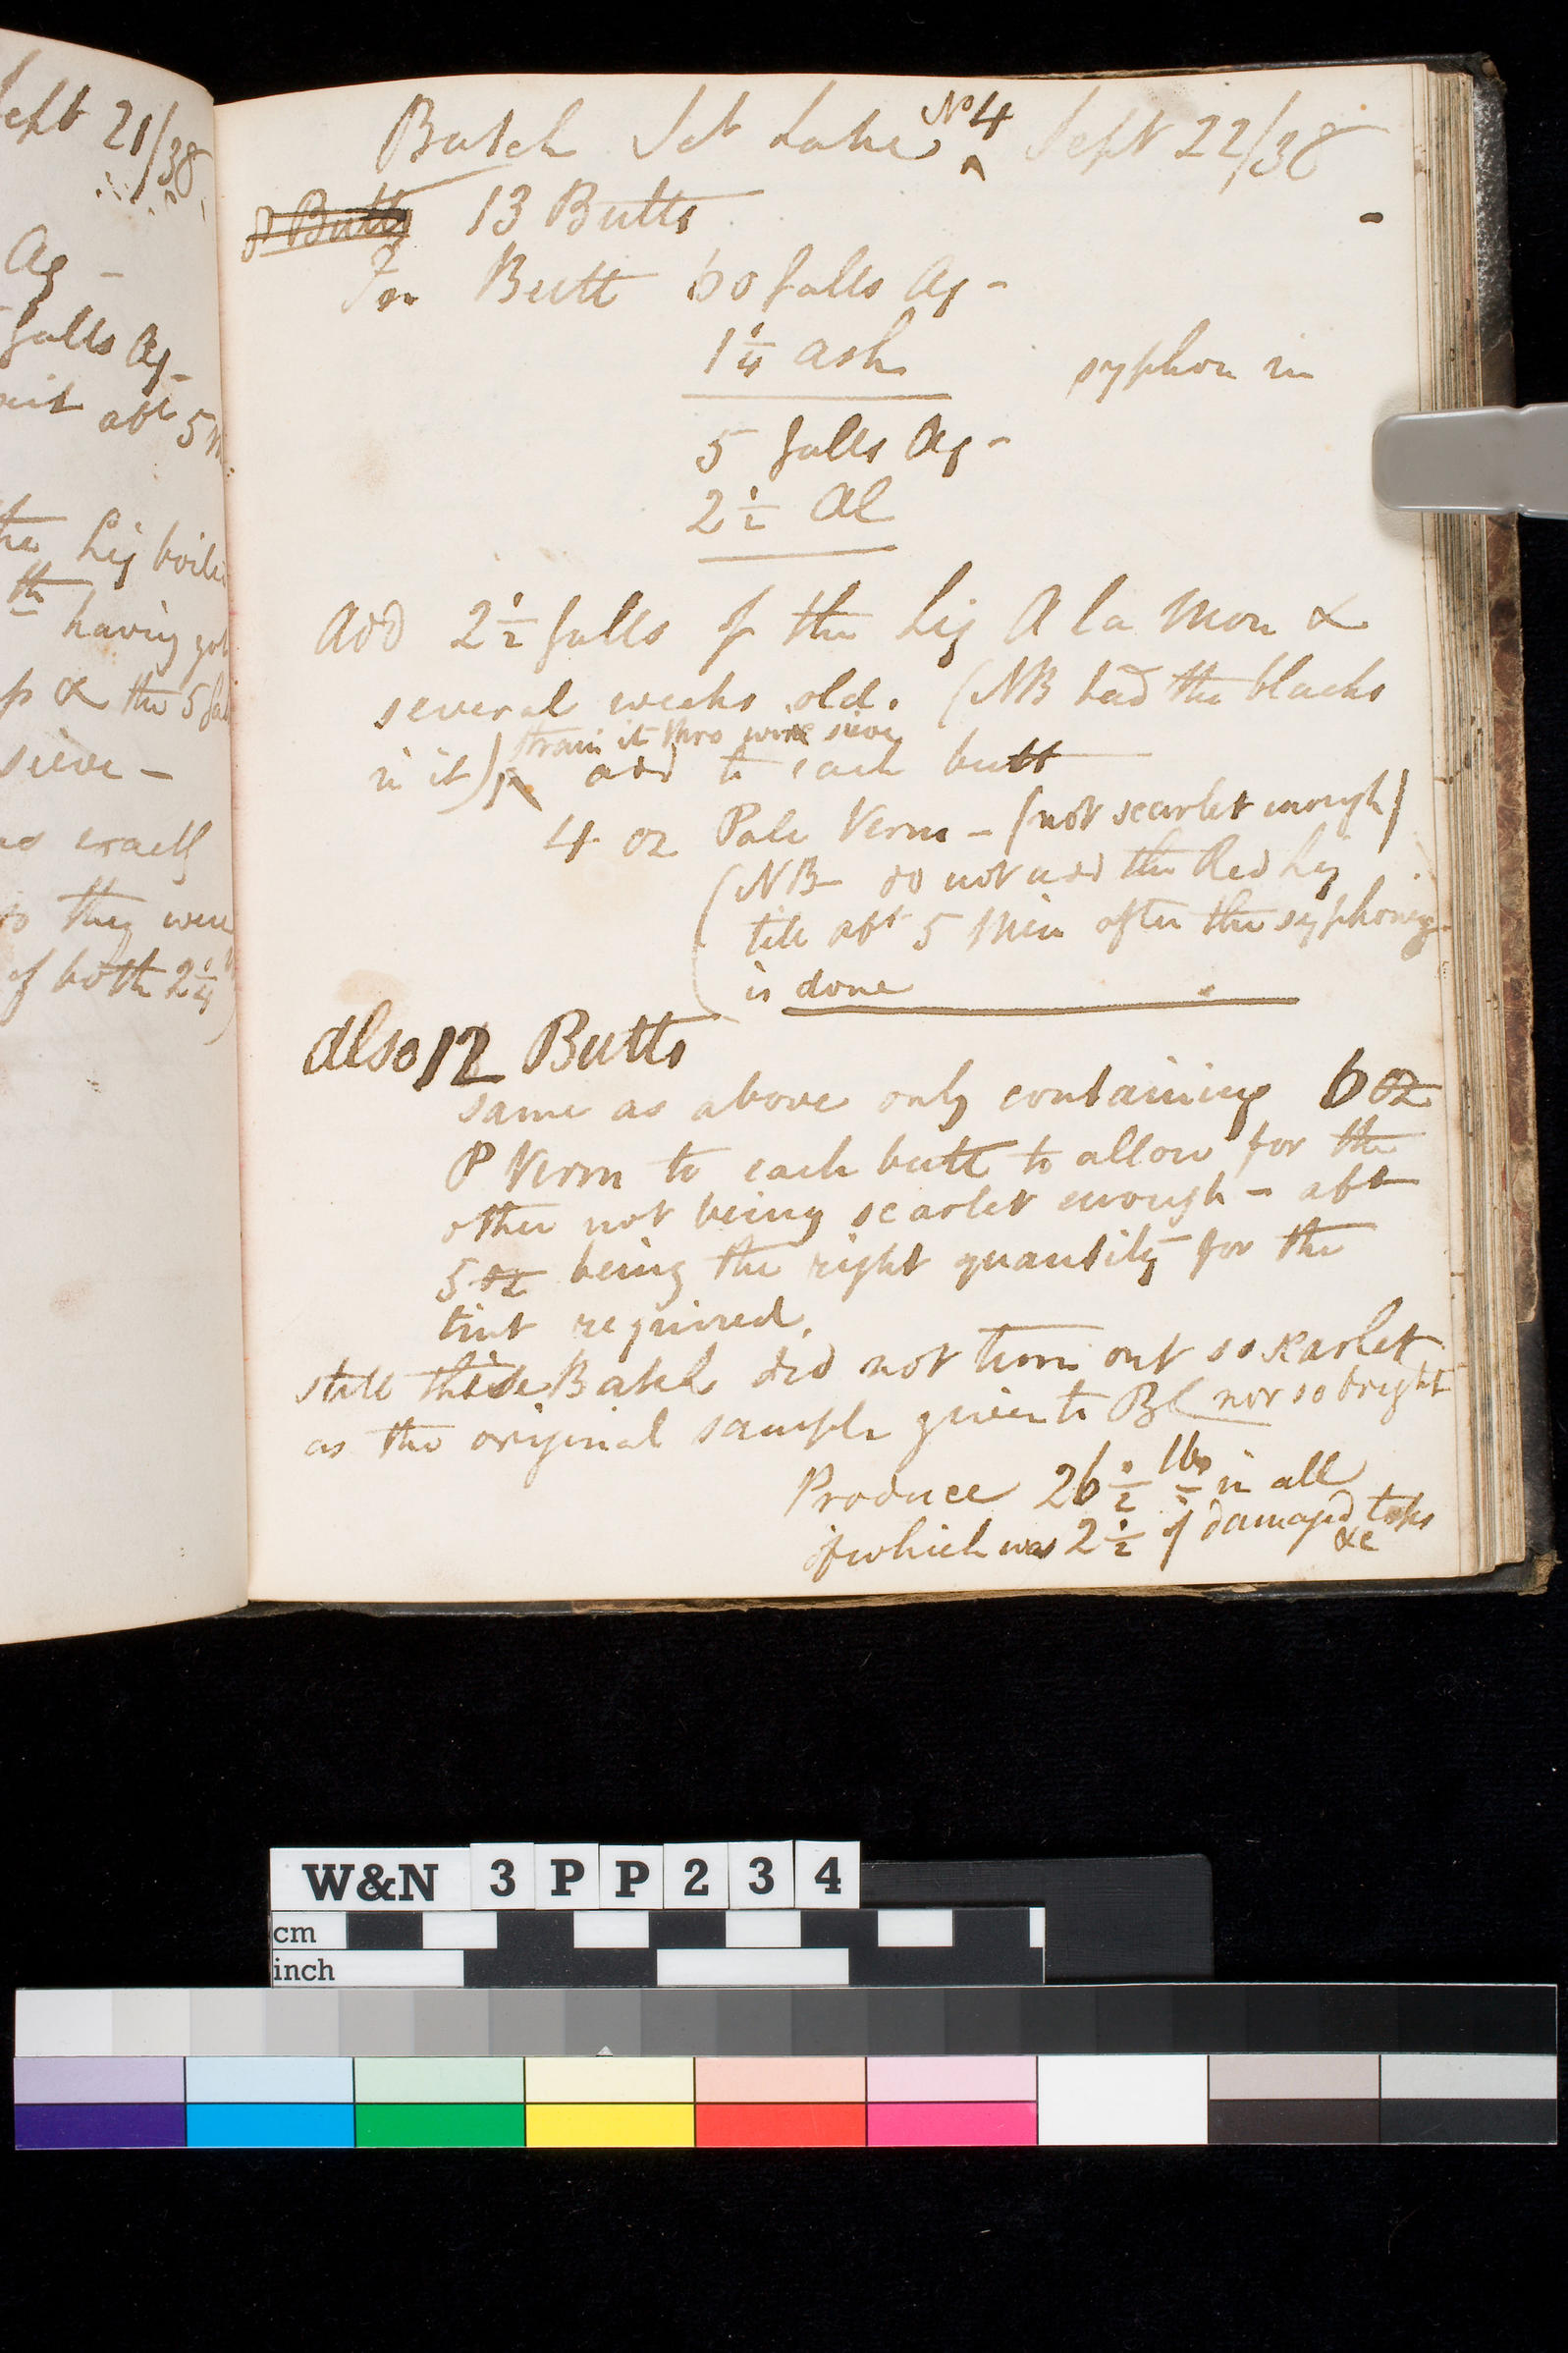 Sept 21/38
Ag -
falls Ag -
abt 5 M
the Liq boili
th having got
& the 5
sieve -
exactly
they were
of both 2 1/4
Batch Sct Lake No 4 Sept 22/38
8 Butts 13 Butts
In Butt 60 falls Ag -
1 1/4 ash syphon in
5 falls Ag -
2 1/2 Al
Add 2 1/2 falls of the Liq A la Mon &
several weeks old. (NB had the blacks
in it) strain it thro wire sieve add to each butt
4 oz Pale Verm - (not scarlet enough)
(NB do not add the Red Liq
till abt 5 Min after the syphoning
is done
Also 12 Butts
same as above only containing 6 oz
P Verm to each butt to allow for the
other not being scarlet enough - abt
5 oz being the right quantity for the
tint required.
still this Batch did not turn out so scarlet
as the original sample given to Bl nor so bright
Produce 26 1/2 lbs in all
of which was 2 1/2 of damaged tops &c
W&N 3PP234
cm
inch